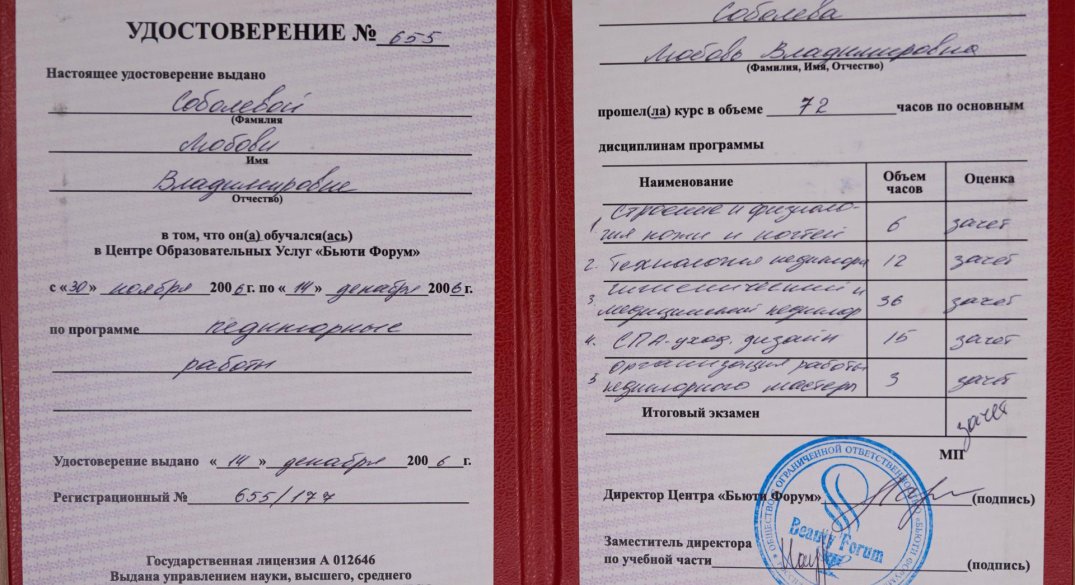 УДОСТОВЕРЕНИЕ № 655
Настоящее удостоверение выдано
Соболевой
(Фамилия
Любови
Имя
Владимировне
Отчество)
в том, что он(а) обучался(ась)
в Центре Образовательных Услуг «Бьюти Форум»
с «30» ноября 2006г. по «14» декабря 2006г.
по программе педикюрные
работы
Удостоверение выдано «14» декабря 2006 г.
Регистрационный № 655/177
Государственная лицензия А 012646
Выдана управлением науки, высшего, среднего
Соболева
Любовь Владимировна
(Фамилия, Имя, Отчество)
прошел(ла) курс в объеме 72 часов по основным
дисциплинам программы
Наименование Объем часов Оценка
1. Строение и физиоло-
гия кожи и ногтей 6 зачет
2. Технология педикюра 12 зачет
3. Гигиенический и
медицинский педикюр 36 зачет
4. СПА-уход. дизайн 15 зачет
5 Организация работы
педикюрного мастера 3 зачет
Итоговый экзамен зачет
МП
Директор Центра «Бьюти Форум» (подпись)
Заместитель директора
по учебной части (подпись)
ОБЩЕСТВО С ОГРАНИЧЕННОЙ ОТВЕТСТВЕННОСТЬЮ
Beauty Forum